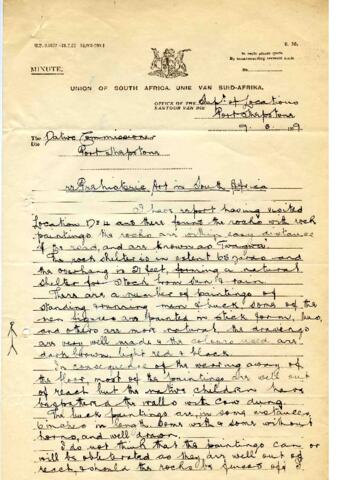 MINUTE.
UNION OF SOUTH AFRICA. UNIE VAN SUID-AFRIKA.
OFFICE OF THE Supt of Locations
KANTOOR VAN DIE Port Shepstone
The Native Commissioner
Die
Port Shepstone
re Prehistoric Art in South Africa
I have report having visited
Location No 4 and there found the rocks with rock
paintings. The rocks are within easy distance
of road, and are known as
The rock shelter is in extent 65 yards and
the overhang is 21 feet, forming a natural
shelter for stock from sun & rain.
There are a number of paintings of
standing & running men & buck, some of the
men figures are painted in stick form,
and others are more natural. The drawings
are very well made & the colours used are
dark brown, light red & black.
In consequence of the wearing away of
the floor, most of the paintings are well out
of reach but the native children have
the walls with cow dung.
The buck paintings are, in some instances,
6 inches in length some with & some without
horns, and well drawn.
I do not think that the paintings can or
will be obliterated as they are well out of
reach, & should the rocks be fenced off